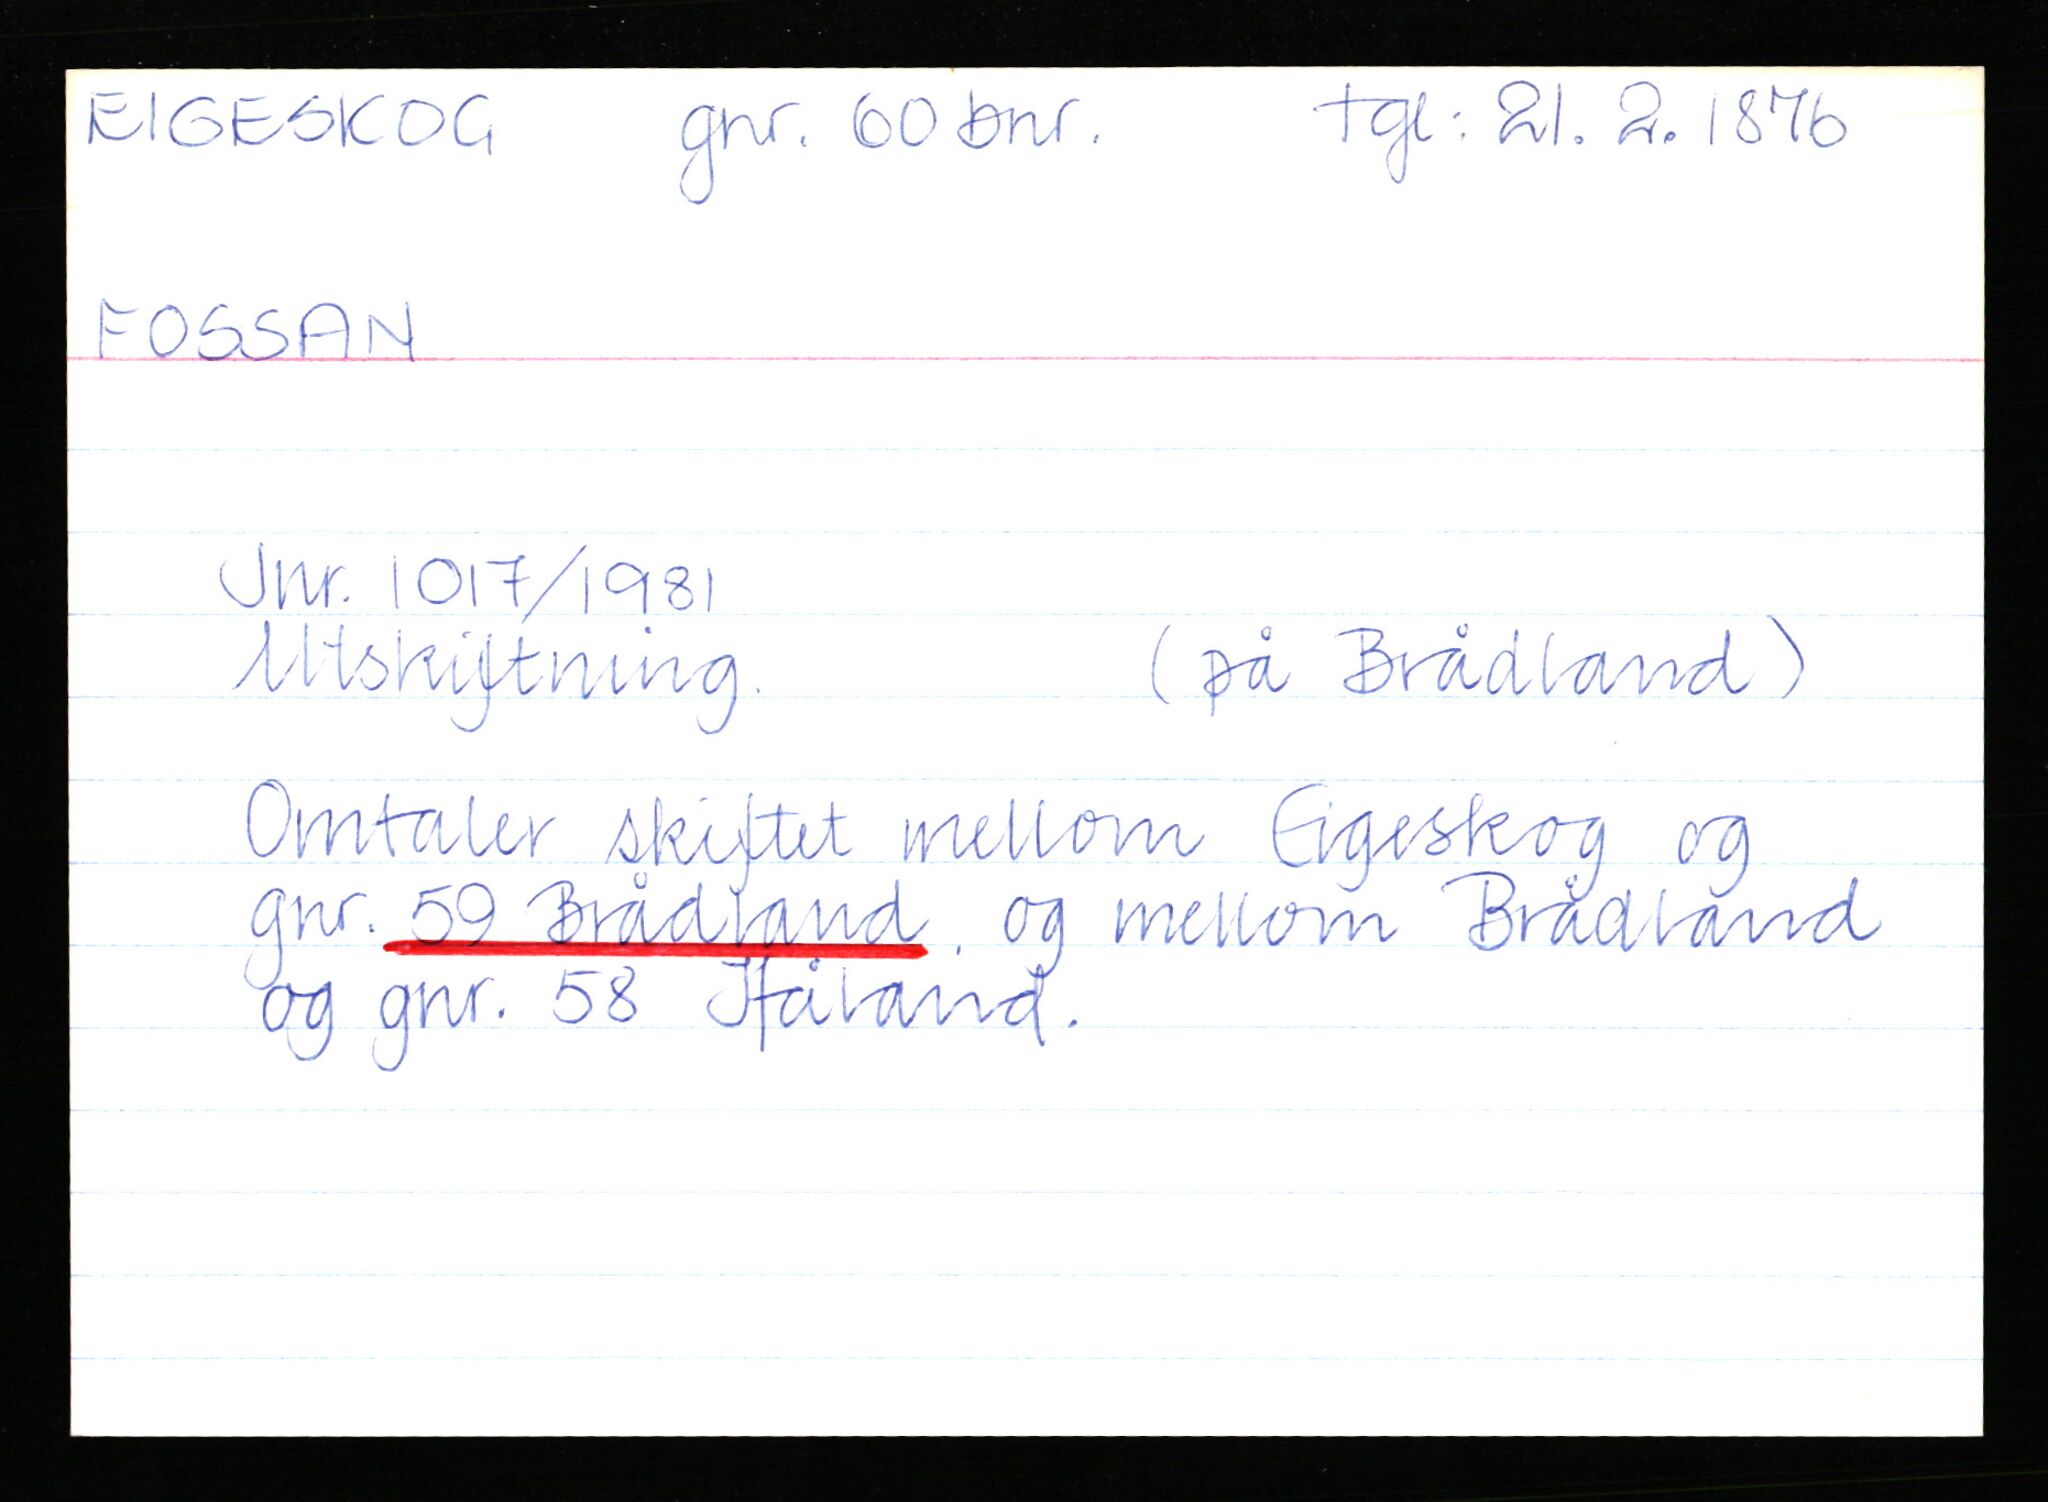 EIGESKOG gnr. 60 bnr. tgl: 21. 2. 1876
FOSSAN
Jnr. 1017/1981
Utskiftning. (på Brådland)
Omtaler skiftet mellom Eigeskog og
gnr. 59 Brådland, og mellom Brådland
og gnr. 58 Håland.